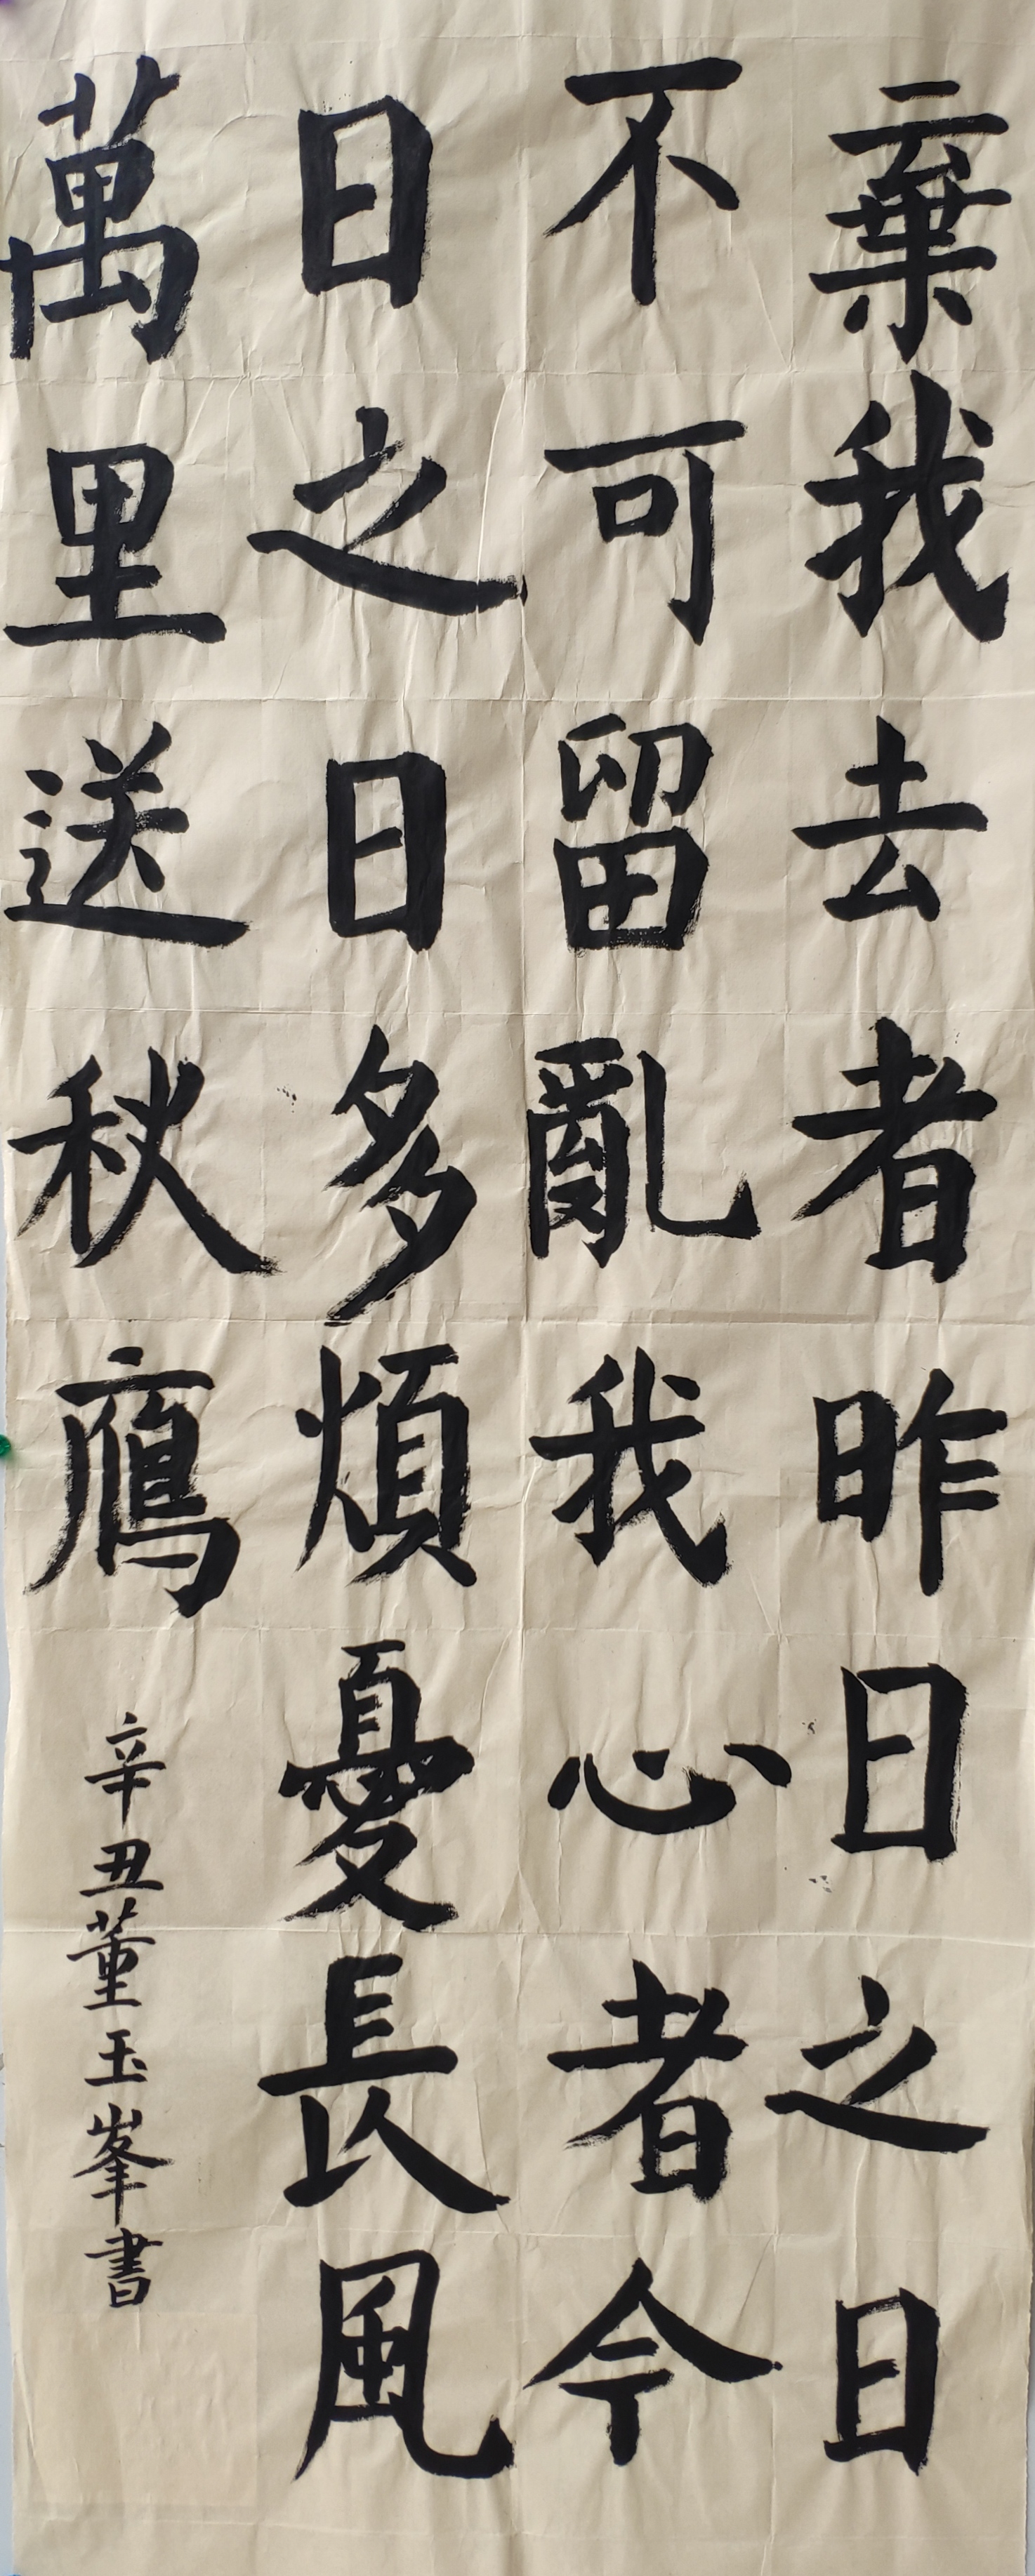 棄我去者昨日之日
不可留亂我心者今
日之日多煩憂長風
萬里送秋鴈
辛丑董玉峯書